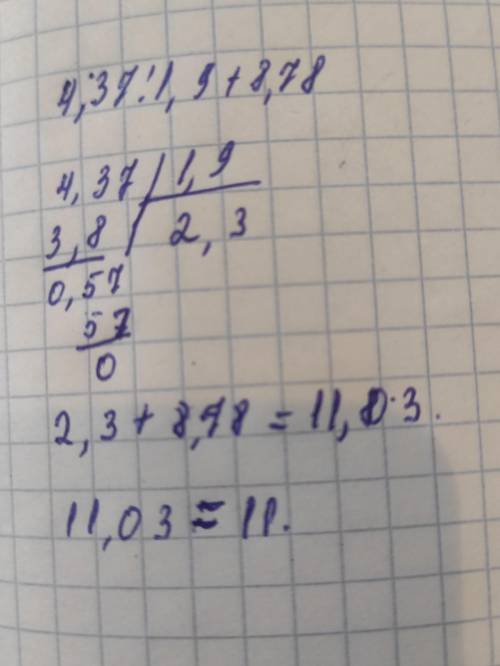 4,37:1,9+8,78
4,37 | 1,9
3,8 2,3
0,57
57
0
2,3+8,78=11,03.
11,03≈11.